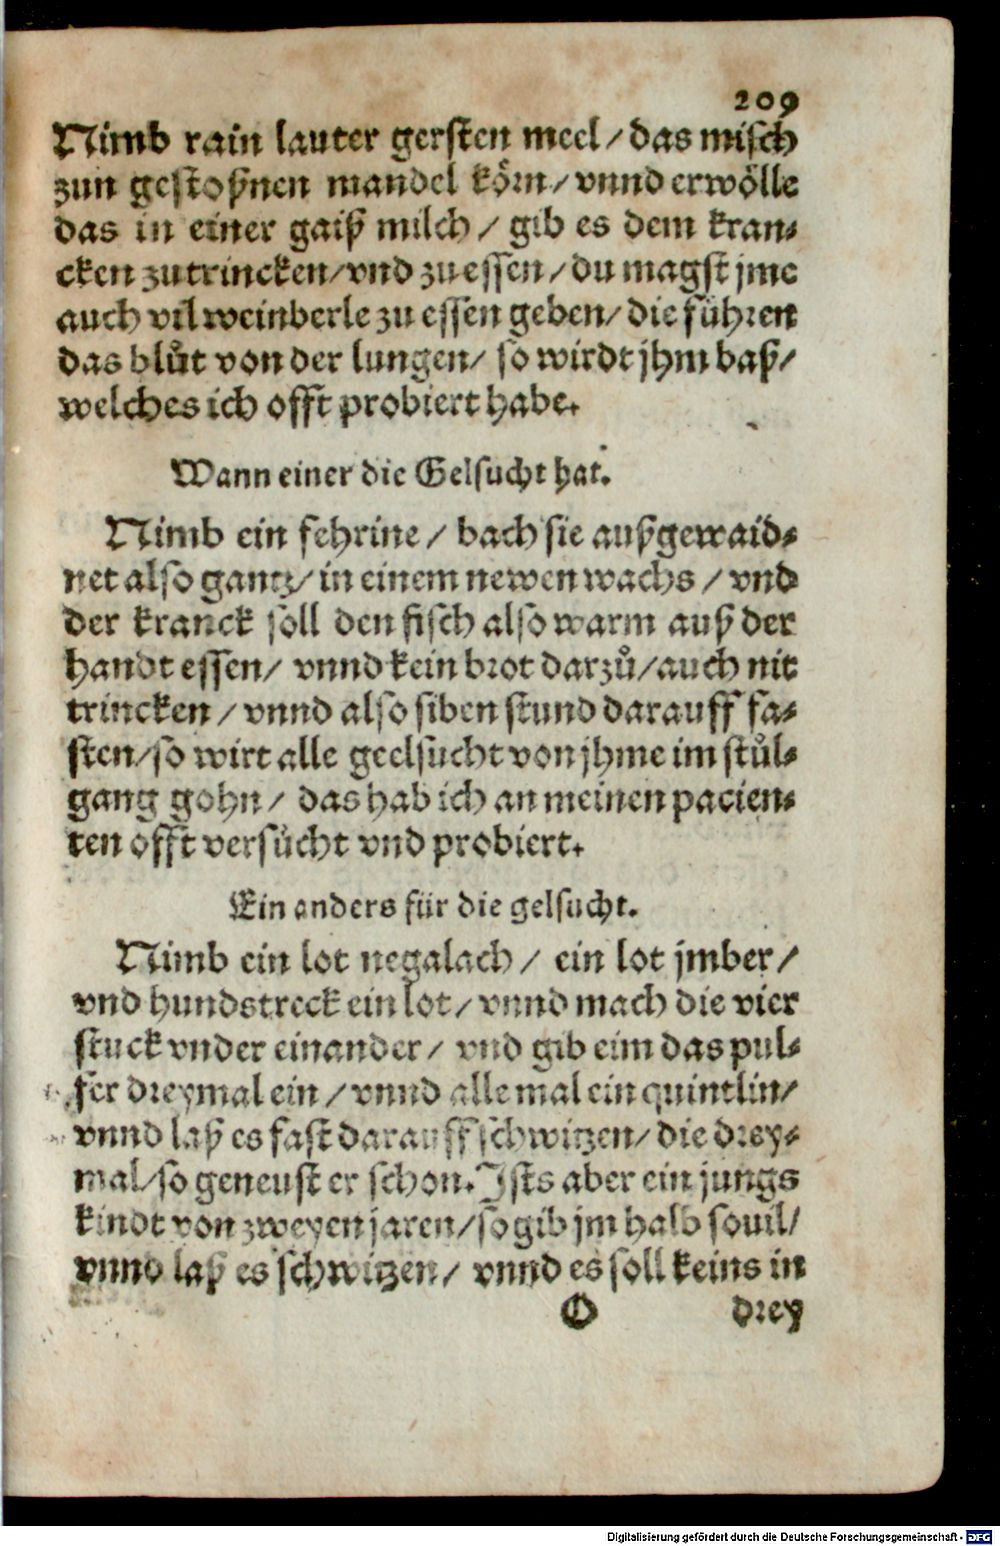 209
Nimb rain lauter gersten meel / das misch
zun gestoßnen mandel körn / vnnd erwölle
das in einer gaiß milch / gib es dem kran⸗
cken zutrincken / vnd zu essen / du magst jme
auch vil weinberle zu essen geben / die führen
das blůt von der lungen / so wirdt jhm baß /
welches ich offt probiert habe.
Wann einer die Gelsucht hat.
Nimb ein fehrine / bach sie außgewaid⸗
net also gantz / in einem newen wachs / vnd
der kranck soll den fisch also warm auß der
handt essen / vnnd kein brot darzů / auch nit
trincken / vnnd also siben stund darauff fa⸗
sten / so wirt alle geelsucht von jhme im stůl⸗
gang gohn / das hab ich an meinen pacien⸗
ten offt versůcht vnd probiert.
Ein anders für die gelsucht.
Nimb ein lot negalach / ein lot jmber /
vnd hundstreck ein lot / vnnd mach die vier
stuck vnder einander / vnd gib eim das pul⸗
fer dreymal ein / vnnd alle mal ein quintlin /
vnnd laß es fast darauff schwitzen / die drey⸗
mal / so geneust er schon. Ists aber ein jungs
kindt von zweyen jaren / so gib jm halb souil /
vnnd laß es schwitzen / vnnd es soll keins in
O drey
Digitalisierung gefördert durch die Deutsche Forschungsgemeinschaft - DFG